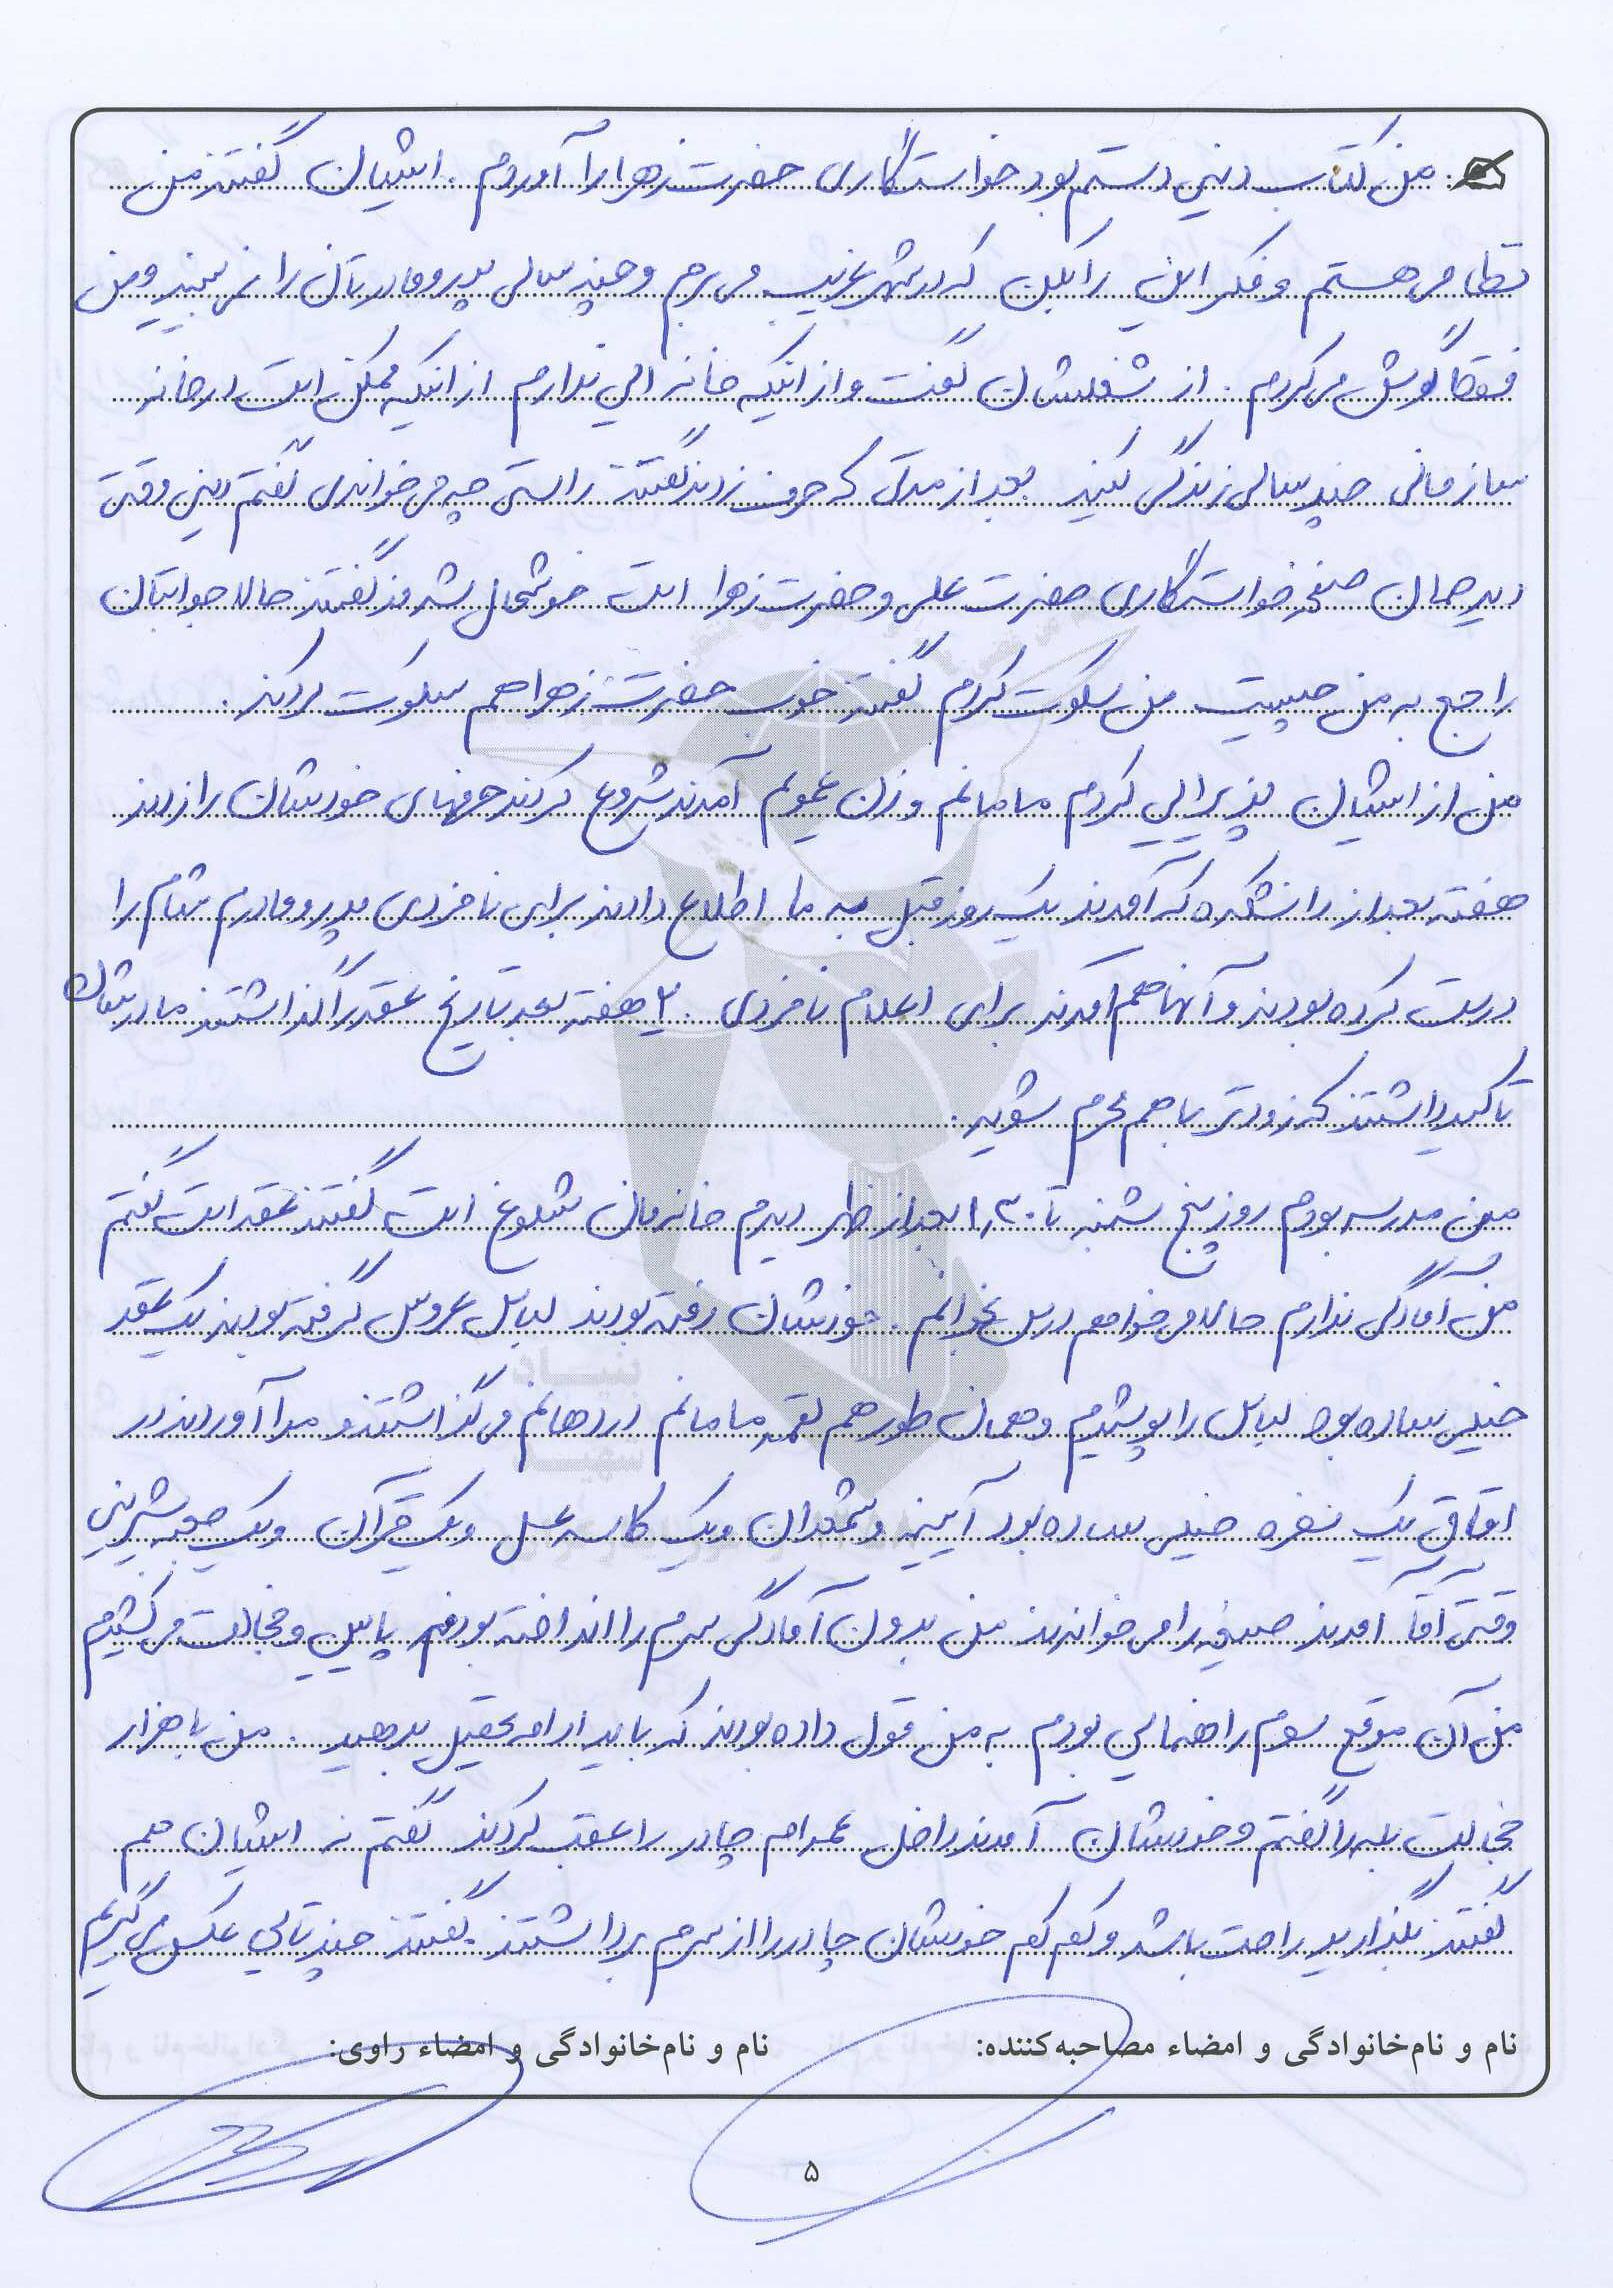 من کتاب دینی دستم بود خواستگاری حضرت زهرا را آوردم. ایشان گفتند من
نظامی هستم و فکر این را بکن که در شهر غریب می برم و چند سالی پدر و مادرتان را نمی بینید و من
فقط گوش می کردم. از شغلشان گفت و از اینکه خانه الی ندارم از اینکه ممکن است در خانه
سازمانی چند سالی زندگی کنید بعد از مدتی که حرف زدند گفتند راستی چه می خواندی گفتم دینی وقتی
دید همان صفحه خواستگاری حضرت علی و حضرت زهرا است خوشحال شدند گفتند حالا جوابتان
راجع به من چیست من سکوت کردم گفتند خوب حضرت زهرا هم سکوت کردند.
من از ایشان پذیرایی کردم مامانم و زن عمویم آمدند شروع کردند حرفهای خودشان را زدند
هفته بعد از دانشکده که آمدند یک روز قبل به ما اطلاع دادند برای نامزدی پدر و مادرم شام را
درست کرده بودند و آنها هم آمدند برای اعلام نامزدی. ۲ هفته بعد تاریخ عقد را گذاشتند مادرشان
تاکید داشتند که زودتر با هم محرم شوید.
من مدرسه بودم روز پنج شنبه تا ۱،۳۰ بعد از ظهر دیدم خانه مان شلوغ است گفتند عقد است گفتم
من آمادگی ندارم حالا می خواهم درس بخوانم. خودشان رفته بودند لباس عروس گرفته بودند یک عقد
خیلی ساده بود لباس را پوشیدم و همان طور هم لقمه مامانم در دهانم می گذاشتند و مرا آوردند در
اتاق یک سفره خیلی ساده بود آیینه و شمعدان و یک کاسه عسل و یک قرآن و یک جعبه شیرینی
وقتی آقا آمدند صیغه را می خواندند من بدون آمادگی سرم را انداخته بودم پایین و خجالت می کشیدم
من آن موقع سوم راهنمایی بودم به من قول داده بودند که باید ادامه تحصیل بدهید. من با هزار
خجالت بله را گفتم و خودشان آمدند داخل چادر را عقب کردند گفتم نه ایشان هم
گفتند بگذارید راحت باشد و کم کم خودشان چادر را از سرم برداشتند گفتند چند تایی عکس می گیریم
نام و نام‌خانوادگی و امضاء مصاحبه‌کننده: نام و نام‌خانوادگی و امضاء راوی:
۵